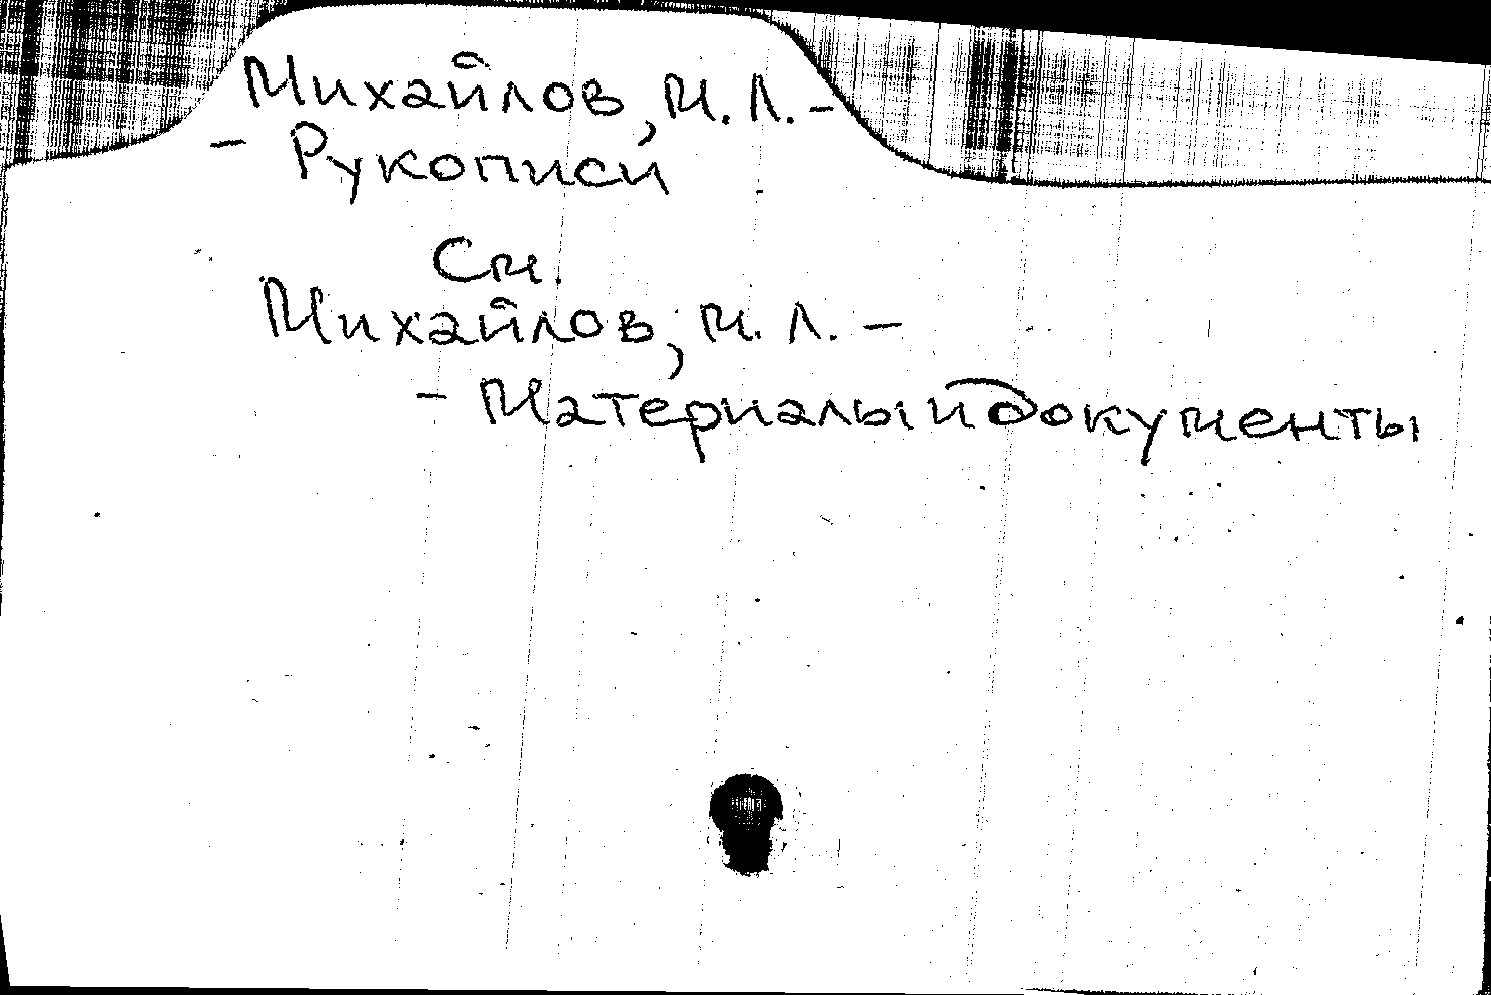 Михайлов, М. Л. –
– Рукописи
См.
Михайлов, М. Л. –
– Материалы и документы